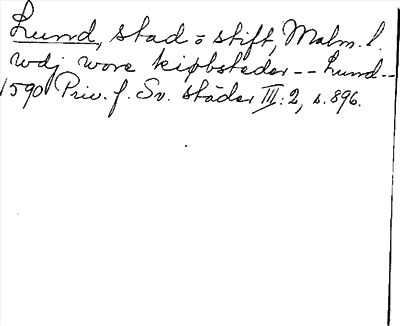 Lund, stad o stift, Malm. l.
wdj wore kiøbsteder -- Lund --
1590 Priv. f. Sv. städer III: 2, s. 896.